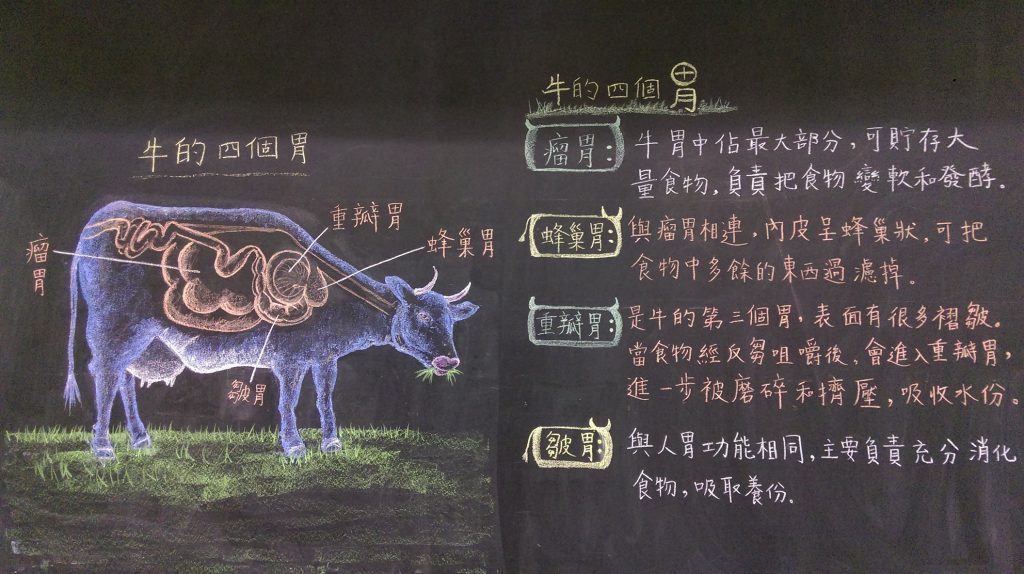 牛的四個胃
重瓣胃
蜂巢胃
瘤
胃
皺胃
牛的四個胃
瘤胃: 牛胃中佔最大部分,可貯存大
量食物,負責把食物變軟和發酵。
蜂巢胃: 與瘤胃相連,內皮呈蜂巢狀,可把
食物中多餘的東西過濾掉。
重瓣胃: 是牛的第三個胃,表面有很多褶皺。
當食物經反芻咀嚼後,會進入重瓣胃,
進一步被磨碎和擠壓,吸收水份。
皺胃: 與人胃功能相同,主要負責充分消化
食物,吸取養份.